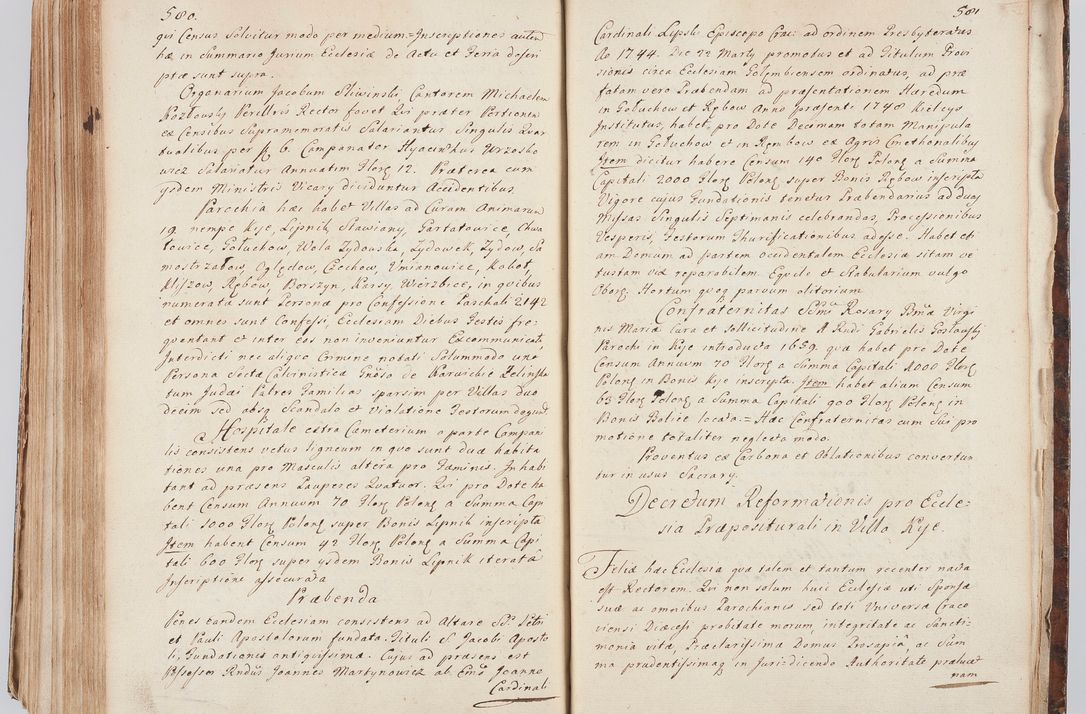 580.
qui Census solvitur modo per medium = Inscriptiones authen
hæ in Summario Jurium Ecclesiæ de Actu et Feria descri
ptæ sunt supra.
Organarium Jacobum Sliwinski, Cantorem Michaelem
Kozłowsky Perillris Rector fovet Qui præter Portionem
ex Censibus Supramemoratis Salariantur Singulis Quar
tualibus per 6. Campanator Hyacinthus Wrzosko
wicz Salariatur Annuatim Flor 12. Præterea cum
ysdem Ministris Vicary dividuntur Accidentibus
Parochia hæc habet Villas ad Curam Animarum
19. nempe Kije, Lipnik, Stawiany, Gartatowice, Chwa
towice, Gołuchow, Wola Zydowska, Zydowek, Zydow, Sa
mostrzałow, Oględow, Czechow, Umianowice, Kokot,
Kliszow, Rębow, Borszyn, Karsy, Wierzbice, in quibus
numeratæ sunt Personæ pro Confessione Paschali 2142
et omnes sunt Confessi, Ecclesiam Diebus Festis fre=
quentant et inter eos non inveniuntur Excommunicati,
Interdicti nec aliquo Crimine notati Solummodo una
Persona Secta Calvinistica Gnoso de Karwickie Zelinska
tum Judæi Patres Familias sparsim per Villas duo
decim sed absq Scandalo et Violatione Festorum degunt
Hospitale extra Cæmeterium a parte Campani
lis consistens vetus ligneum in quo sunt duæ habita
tiones una pro Masculis altera pro Fæminis. Inhabi
tant ad præsens Pauperes Quatuor. Qui pro Dote ha
bent Censum Annuum 70 Flor Polon a Summa Capi
tali 1000 Flor Polon super Bonis Lipnik inscripta
Item habent Censum 42 Flor Polon a Summa Capi
tali 600 Flor super ysdem Bonis Lipnik iterata
Inscriptione assecurata
Præbenda
Penes eandem Ecclesiam consistens ad Altare SS. Petri
et Pauli Apostolorum fundata. Tituli S. Jacobi Aposto
li, Fundationis antiquissimæ. Cujus ad præsens est
Possessor Rndus Joannes Martynowicz ab Emo Joanne
Cardinali
581
Cardinali Lipski Episcopo Crac: ad ordinem Presbyteratus
Ao 1744. Die 22 Marty promotus et ad Titulum Provi
sionis circa Ecclesiam Gołembiensem ordinatus, ad præ
fatam vero Præbendam ad præsentationem Hæredum
in Gołuchow et Rębow Anno præsenti 1748 Kielcys
Institutus, habet pro Dote Decimam totam Manipula
rem in Gołuchow et in Rembow ex Agris Cmethonalibus
Item dicitur habere Censum 140 Flor Polon a Summa
Capitali 2000 Flor Polon super Bonis Rębow inscripta
Vigore cujus Fundationis tenetur Præbendarius ad duas
Missas Singulis Septimanis celebrandas, Processionibus
Vesperis, Festorum Thurificationibus adesse. Habet eti
am Domum ad partem occidentalem Ecclesiæ sitam ve
tustam viæ reparabilem Equile et Stabularium vulgo
Obory. Hortum quoq parvum olitorium
Confraternitas Ssmi Rosary Bmæ Virgi
nis Mariæ Cura et sollicitudine A Rndi Gabrielis Gosławsky
Parochi in Kije introducta 1659. quæ habet pro Dote
Censum Annuum 70 Flor a Summa Capitali 1000 Flor
Polon in Bonis Kije inscripta. Item habet alium Censum
63 Flor Polon a Summa Capitali 900 Flor Polon in
Bonis Balice locata = Hæc Confraternitas cum Sui pro
motione totaliter neglecta modo.
Proventus ex Carbona et Oblationibus convertun
tur in usus Sacrary.
Decretum Reformationis pro Eccle=
sia Præpositurali in Villa Kije.
Felix hæc Ecclesia quæ talem et tantum recenter nacta
est Rectorem. Qui non solum huic Ecclesiæ uti Sponsæ
suæ ac omnibus Parochianis sed toti Universæ Craco
viensi Diæcesi probitate morum, integritate ac Sancti=
monia vitæ, Præclarissima Domus Prosapia, ac Sum
ma prudentissimaq in Jurisdicendo Authoritate prælucet
nam